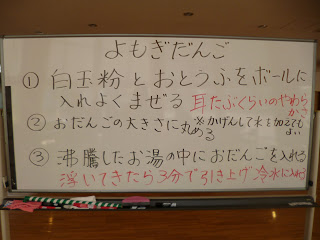 よもぎだんご
① 白玉粉とおとうふをボールに
入れよくまぜる 耳たぶくらいのやわらかさ
② おだんごの大きさに丸める ※かげんして水を加えてもよい
③ 沸騰したお湯の中におだんごを入れる
浮いてきたら3分で引き上げ冷水に入れる